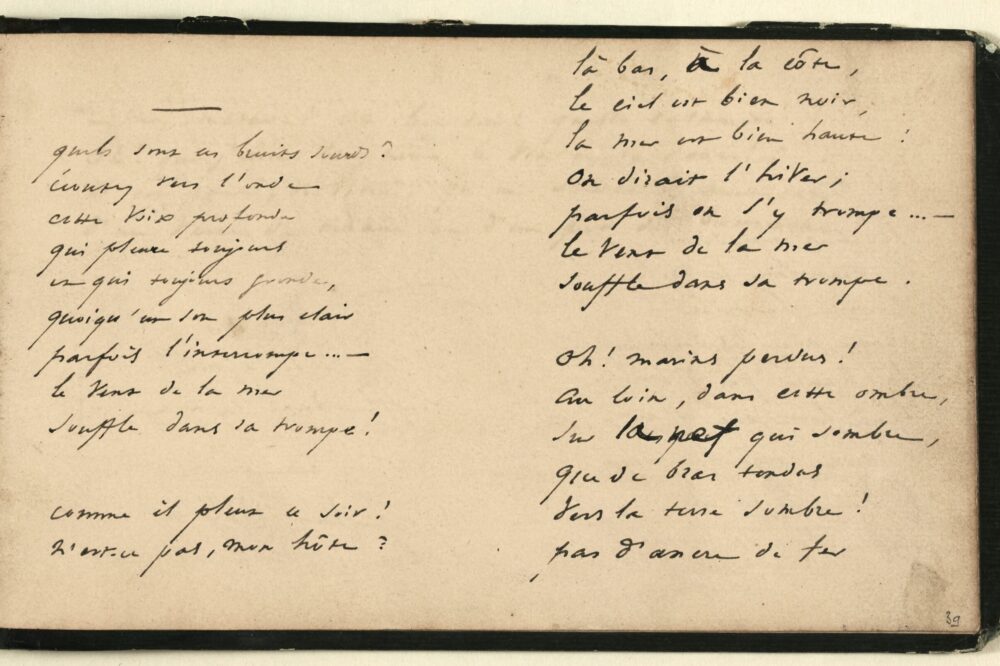 quels sont ces bruits sourds?
écoutez vers l'onde
cette voix profonde
qui pleure toujours
et qui toujours gronde,
quoiqu'un son plus clair
parfois l'interrompe...—
le vent de la mer
souffle dans sa trompe!
comme il pleut ce soir!
n'est-ce pas, mon hôte?
là bas, à la côte,
le ciel est bien noir,
la mer est bien haute!
on dirait l'hiver;
parfois on s'y trompe...—
le vent de la mer
souffle dans sa trompe.
oh! marins perdus!
au loin, dans cette ombre,
sur la nef qui sombre,
que de bras tendus
vers la terre sombre!
pas d'ancre de fer
39